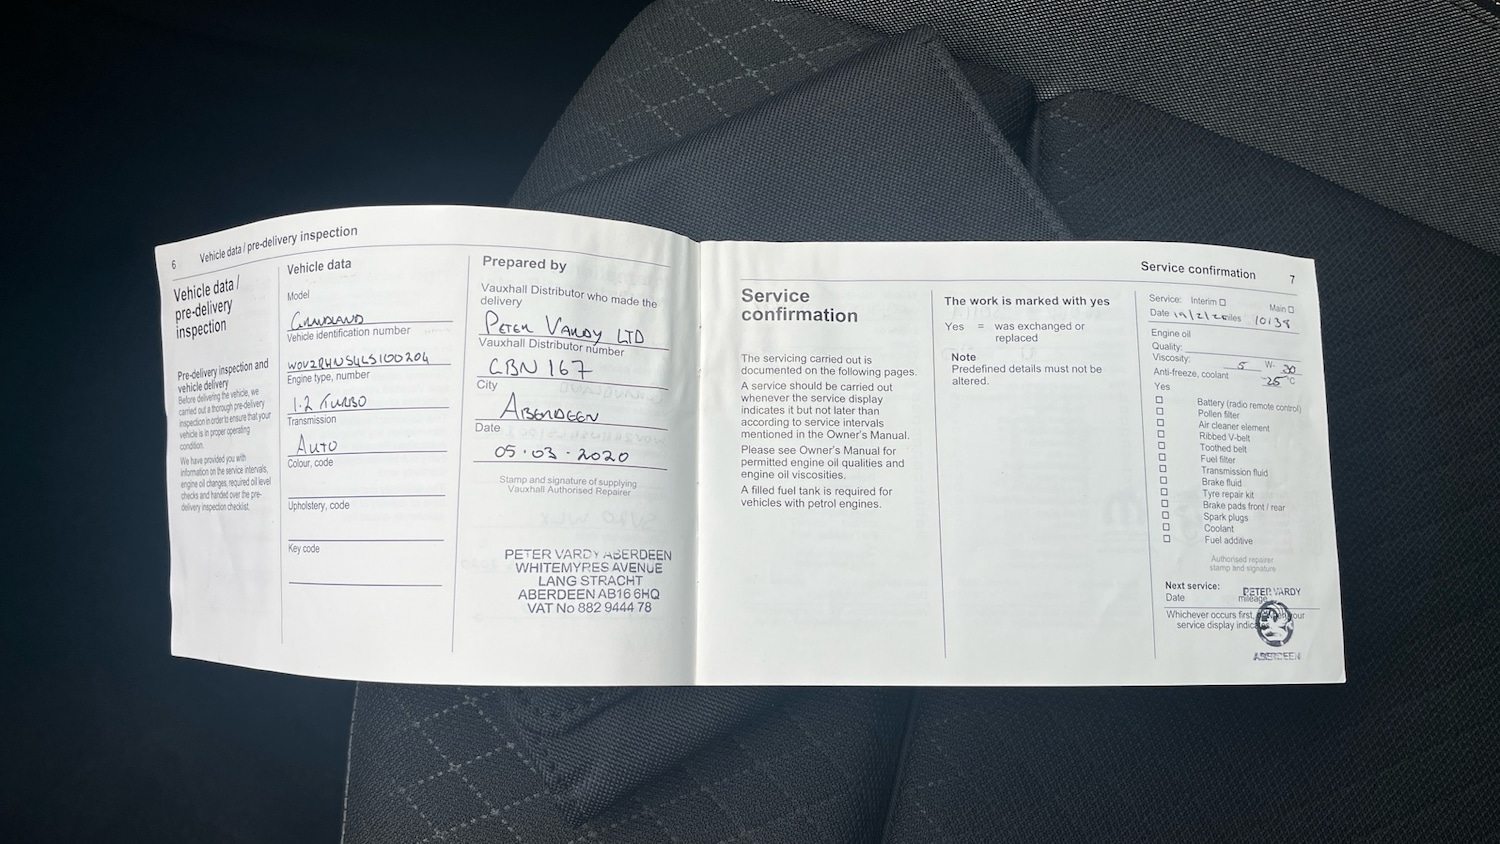 6 Vehicle data / pre-delivery inspection
Vehicle data /
pre-delivery
inspection
Pre-delivery inspection and
vehicle delivery
Before delivering the vehicle, we
carried out a thorough pre-delivery
inspection in order to ensure that your
vehicle is in proper operating
condition.
We have provided you with
information on the service intervals,
engine oil changes, required oil level
checks and handed over the pre-
delivery inspection checklist.
Vehicle data
Model
GRANDLAND
Vehicle identification number
Engine type, number
1.2 TURBO
Transmission
AUTO
Colour, code
Upholstery, code
Key code
Prepared by
Vauxhall Distributor who made the
delivery
PETER VARDY LTD
Vauxhall Distributor number
GBN 167
City
ABERDEEN
Date
05.03.2020
Stamp and signature of supplying
Vauxhall Authorised Repairer
PETER VARDY ABERDEEN
WHITEMYRES AVENUE
LANG STRACHT
ABERDEEN AB16 6HQ
VAT No 882 9444 78
Service confirmation 7
Service
confirmation
The servicing carried out is
documented on the following pages.
A service should be carried out
whenever the service display
indicates it but not later than
according to service intervals
mentioned in the Owner's Manual.
Please see Owner's Manual for
permitted engine oil qualities and
engine oil viscosities.
A filled fuel tank is required for
vehicles with petrol engines.
The work is marked with yes
Yes = was exchanged or
replaced
Note
Predefined details must not be
altered.
Service: Interim Main
Date
Engine oil
Quality:
Viscosity: 5 W- 30
Anti-freeze, coolant -25 °C
Yes
Battery (radio remote control)
Pollen filter
Air cleaner element
Ribbed V-belt
Toothed belt
Fuel filter
Transmission fluid
Brake fluid
Tyre repair kit
Brake pads front / rear
Spark plugs
Coolant
Fuel additive
Authorised repairer
stamp and signature
Next service:
Date mileage
PETER VARDY
Whichever occurs first, your
service display
ABERDEEN